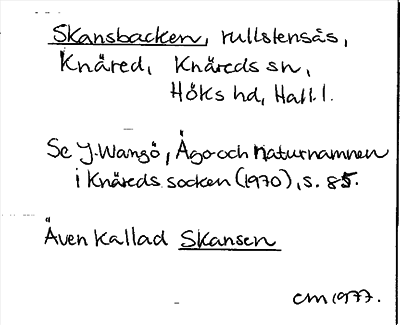 Skansbacken, rullstensås,
Knäred, Knäreds sn,
Höks hd, Hall.l.
Se J. Wangö, Ägo- och naturnamnen
i Knäreds socken (1970), s. 85.
Även kallad Skansen
CM 1977.